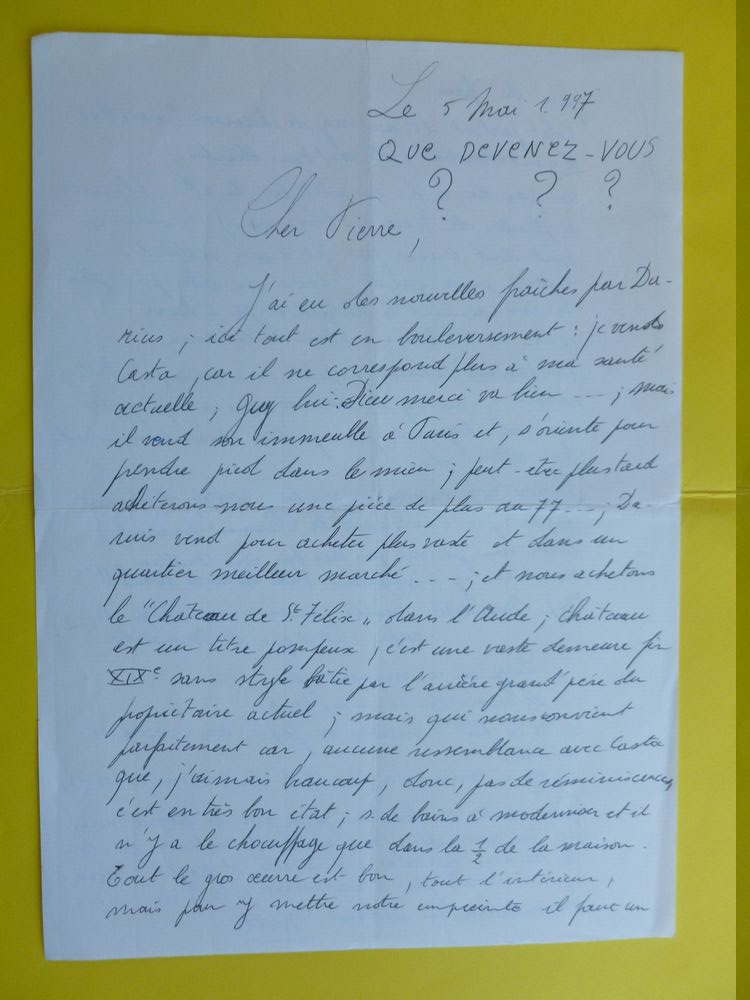 Le 5 Mai 1.997
QUE DEVENEZ-VOUS
? ? ?
Cher Pierre,
J'ai eu des nouvelles fraîches par Da-
rius ; ici tout est en bouleversement : je vends
Casta, car il ne correspond plus à ma santé
actuelle, Guy lui. Dieu merci va bien ---- ; mais
il vend son immeuble à Paris et, s'oriente pour
prendre pied dans le mien ; peut-être plus tard
achèterons-nous une pièce de plus au 77 ---- ; Da-
rius vend pour acheter plus vaste et dans un
quartier meilleur marché ---- ; et nous achetons
le "Château de St. Félix" dans l'Aude ; château
est un titre pompeux, c'est une vaste demeure fin
XIXe sans style bâtie par l'arrière grand'père du
propriétaire actuel ; mais qui nous convient
parfaitement car, aucune ressemblance avec Casta
que, j'aimais beaucoup, donc, pas de réminiscences
c'est en très bon état ; s. de bains à moderniser et il
n'y a le chauffage que dans la 1/2 de la maison.
Tout le gros œuvre est bon, tout l'intérieur,
mais pour y mettre notre empreinte il faut un